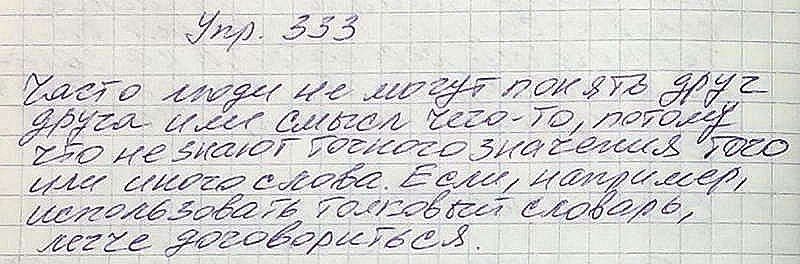 Упр. 333
Часто люди не могут понять друг
друга или смысл чего-то, потому
что не знают точного значения того
или иного слова. Если, например,
использовать толковый словарь,
легче договориться.